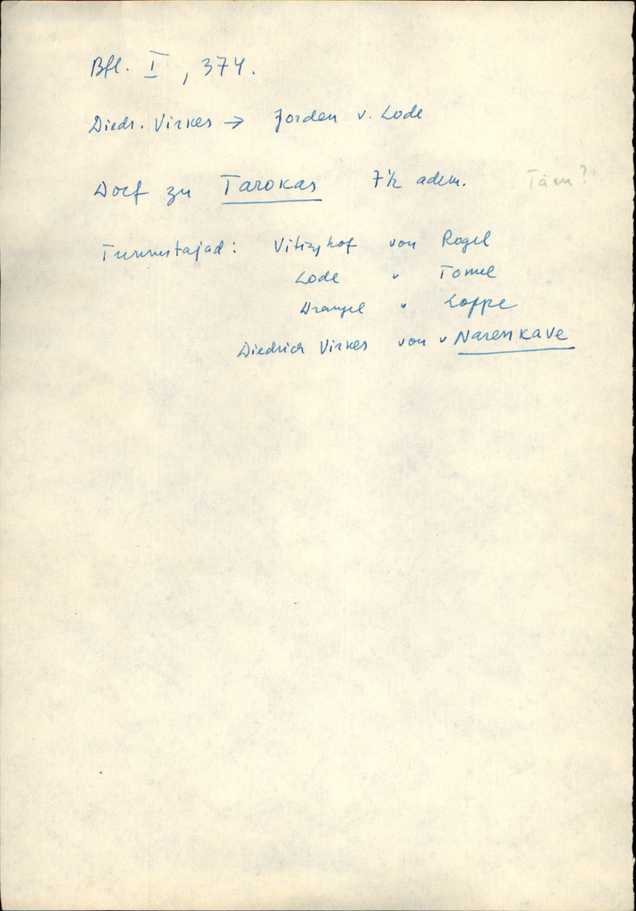 Bfl. I, 374.
Diedr. Virkes → Jorden v. Lode
Dorf zu Tarokas 7½ adem. Täru?
Tunnistajad: Vitinghof von Rogel
Lode " Tomel
Wrangel " Loppe
Diedrich Virkes von " Narenkave